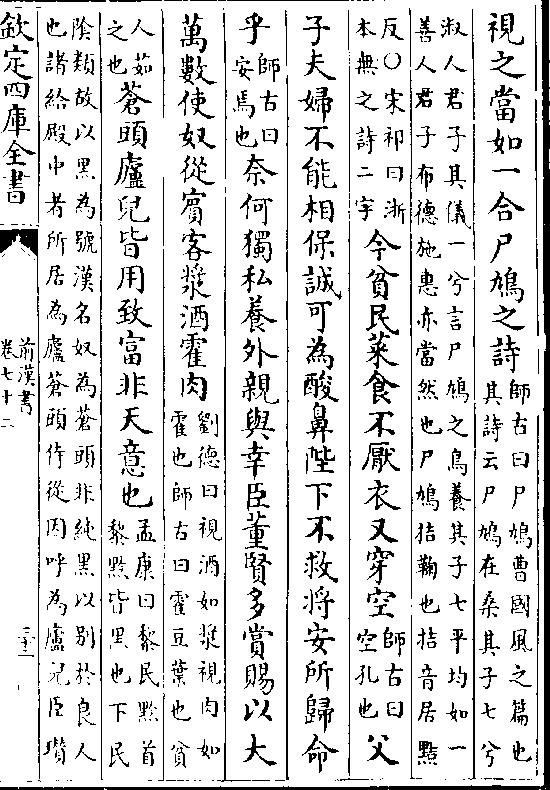 視之當如一合尸鳩之詩師古曰尸鳩曹國風之篇也
其詩云尸鳩在桑其子七兮
淑人君子其儀一兮言尸鳩之鳥養其子七平均如一
善人君子布德施惠亦當然也尸鳩拮鞠也拮音居黠
反○宋祁曰浙
本無之詩二字
今貧民菜食不厭衣又穿空師古曰
空孔也
父
子夫婦不能相保誠可為酸鼻陛下不救將安所歸命
乎師古曰
安焉也
奈何獨私養外親與幸臣董賢多賞賜以大
萬數使奴從賓客漿酒霍肉劉德曰視酒如漿視肉如
霍也師古曰霍豆葉也貧
人茹
之也
蒼頭廬兒皆用致富非天意也孟康曰黎民黔首
黎黔皆黑也下民
陰類故以黑為號漢名奴為蒼頭非純黑以别於良人
也諸給殿中者所居為廬蒼頭侍從因呼為廬兒臣瓚
欽定四庫全書
前漢書
卷七十二